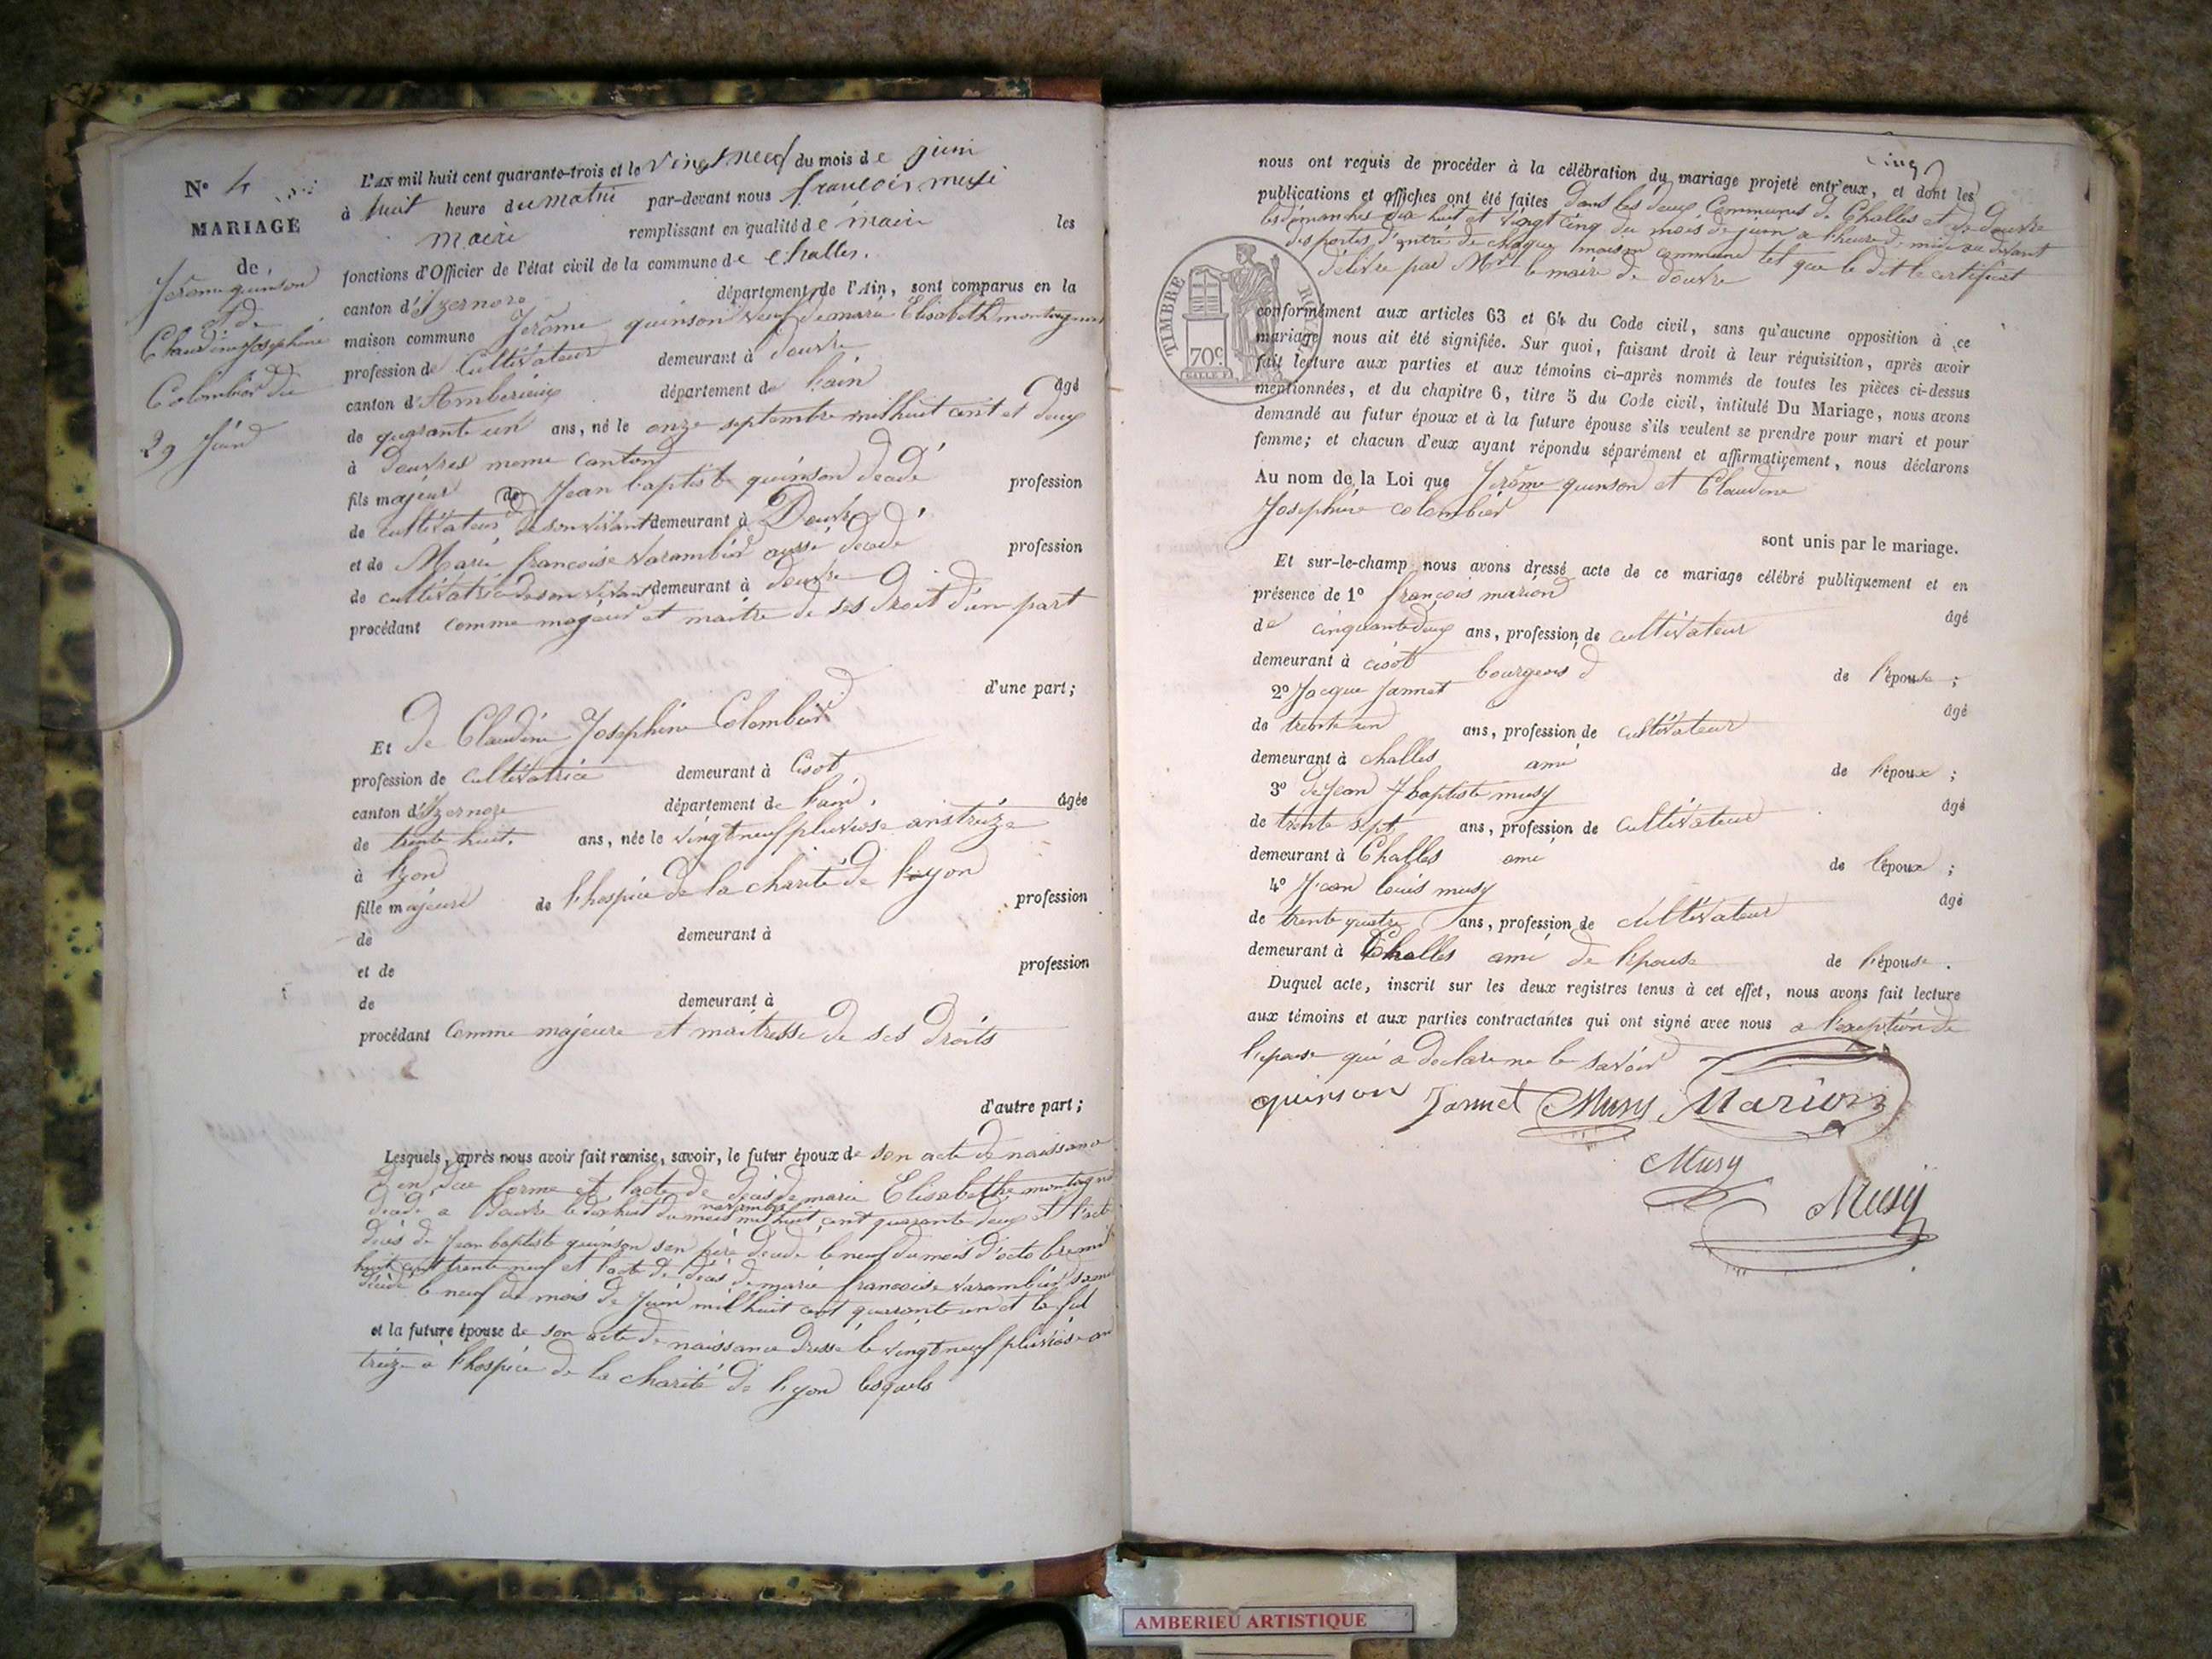 N° 4
MARIAGE
de
Jérôme quinson
et de
Claudine Josephine
Colombier du
29 Juin
L'AN mil huit cent quarante-trois et le vingt neuf du mois de juin
à huit heure du matin par-devant nous francois musi
maire remplissant en qualité de maire les
fonctions d'Officier de l'état civil de la commune de challes.
canton d'Izernore département de l'Ain, sont comparus en la
maison commune Jerôme quinson veuf de marie Elisabeth montagnon
profession de Cultivateur demeurant à douvre
canton d'Amberieux département de l'ain âgé
de quarante un ans, né le onze septembre mil huit cent et deux
à Douvres meme Canton
fils majeur de Jean baptiste quinson decedé profession
de cultivateur de son vivant demeurant à Douvre
et de Marie francoise varambier aussi decedé profession
de cultivatrice de son vivant demeurant à douvre
procédant comme majeur et maitre de ses droit d'une part
d'une part;
Et de Claudine Josephine Colombier
profession de cultivatrice demeurant à Cisot
canton d'Izernore département de l'ain. âgée
de trente huit. ans, née le vingt neuf pluviose ans treize
à lyon
fille majeure de l'hospice de la charité de lyon profession
de demeurant à
et de profession
de demeurant à
procédant Comme majeure et maitresse de ses droits
d'autre part;
Lesquels, après nous avoir fait remise, savoir, le futur époux de son acte de naissance
en due forme et l'acte de décès de marie Elisabethe
décédé a Douvre le dix huit du mois novembre mil huit cent quarante deux et l'acte
décès de Jean baptiste quinson son père decedé le neuf du mois d'octobre mil
huit cent trente neuf et l'acte de décès de marie francoise varambier
décédé le neuf du mois de Juin mil huit cent quarante un et
et la future épouse de son acte de naissance dressé le vingt neuf pluviose an
treize à l'hospice de la charité de lyon lesquels
cinq
nous ont requis de procéder à la célébration du mariage projeté entr'eux, et dont les
publications et affiches ont été faites Dans les deux Communes de Challes et de Douvre
les dimanches dix huit et vingt cinq du mois de juin a l'heure de midi au devant
des portes d'entré de chaque maison commune tel que le dit le certificat
délivré par Mr le maire de douvre
TIMBRE ROYAL
70c
conformément aux articles 63 et 64 du Code civil, sans qu'aucune opposition à ce
mariage nous ait été signifiée. Sur quoi, faisant droit à leur réquisition, après avoir
fait lecture aux parties et aux témoins ci-après nommés de toutes les pièces ci-dessus
mentionnées, et du chapitre 6, titre 5 du Code civil, intitulé Du Mariage, nous avons
demandé au futur époux et à la future épouse s'ils veulent se prendre pour mari et pour
femme; et chacun d'eux ayant répondu séparément et affirmativement, nous déclarons
Au nom de la Loi que Jérôme quinson et Claudine
Josephine colombier
sont unis par le mariage.
Et sur-le-champ nous avons dressé acte de ce mariage célébré publiquement et en
présence de 1° francois marion
de cinquante deux ans, profession de cultivateur âgé
demeurant à cisot bourgeois de l'épouse;
2° Jacque Jannet âgé
de trente un ans, profession de cultivateur
demeurant à challes ami de l'époux;
3° de Jean baptiste musy âgé
de trente sept ans, profession de Cultivateur
demeurant à Challes ami de l'époux;
4° Jean louis musy âgé
de trente quatre ans, profession de cultivateur
demeurant à Challes ami de l'épouse de l'épouse.
Duquel acte, inscrit sur les deux registres tenus à cet effet, nous avons fait lecture
aux témoins et aux parties contractantes qui ont signé avec nous a l'exeption de
l'epouse qui a declare ne le savoir
quinson Jannet Musy Marion
Musy
Musy
AMBERIEU ARTISTIQUE